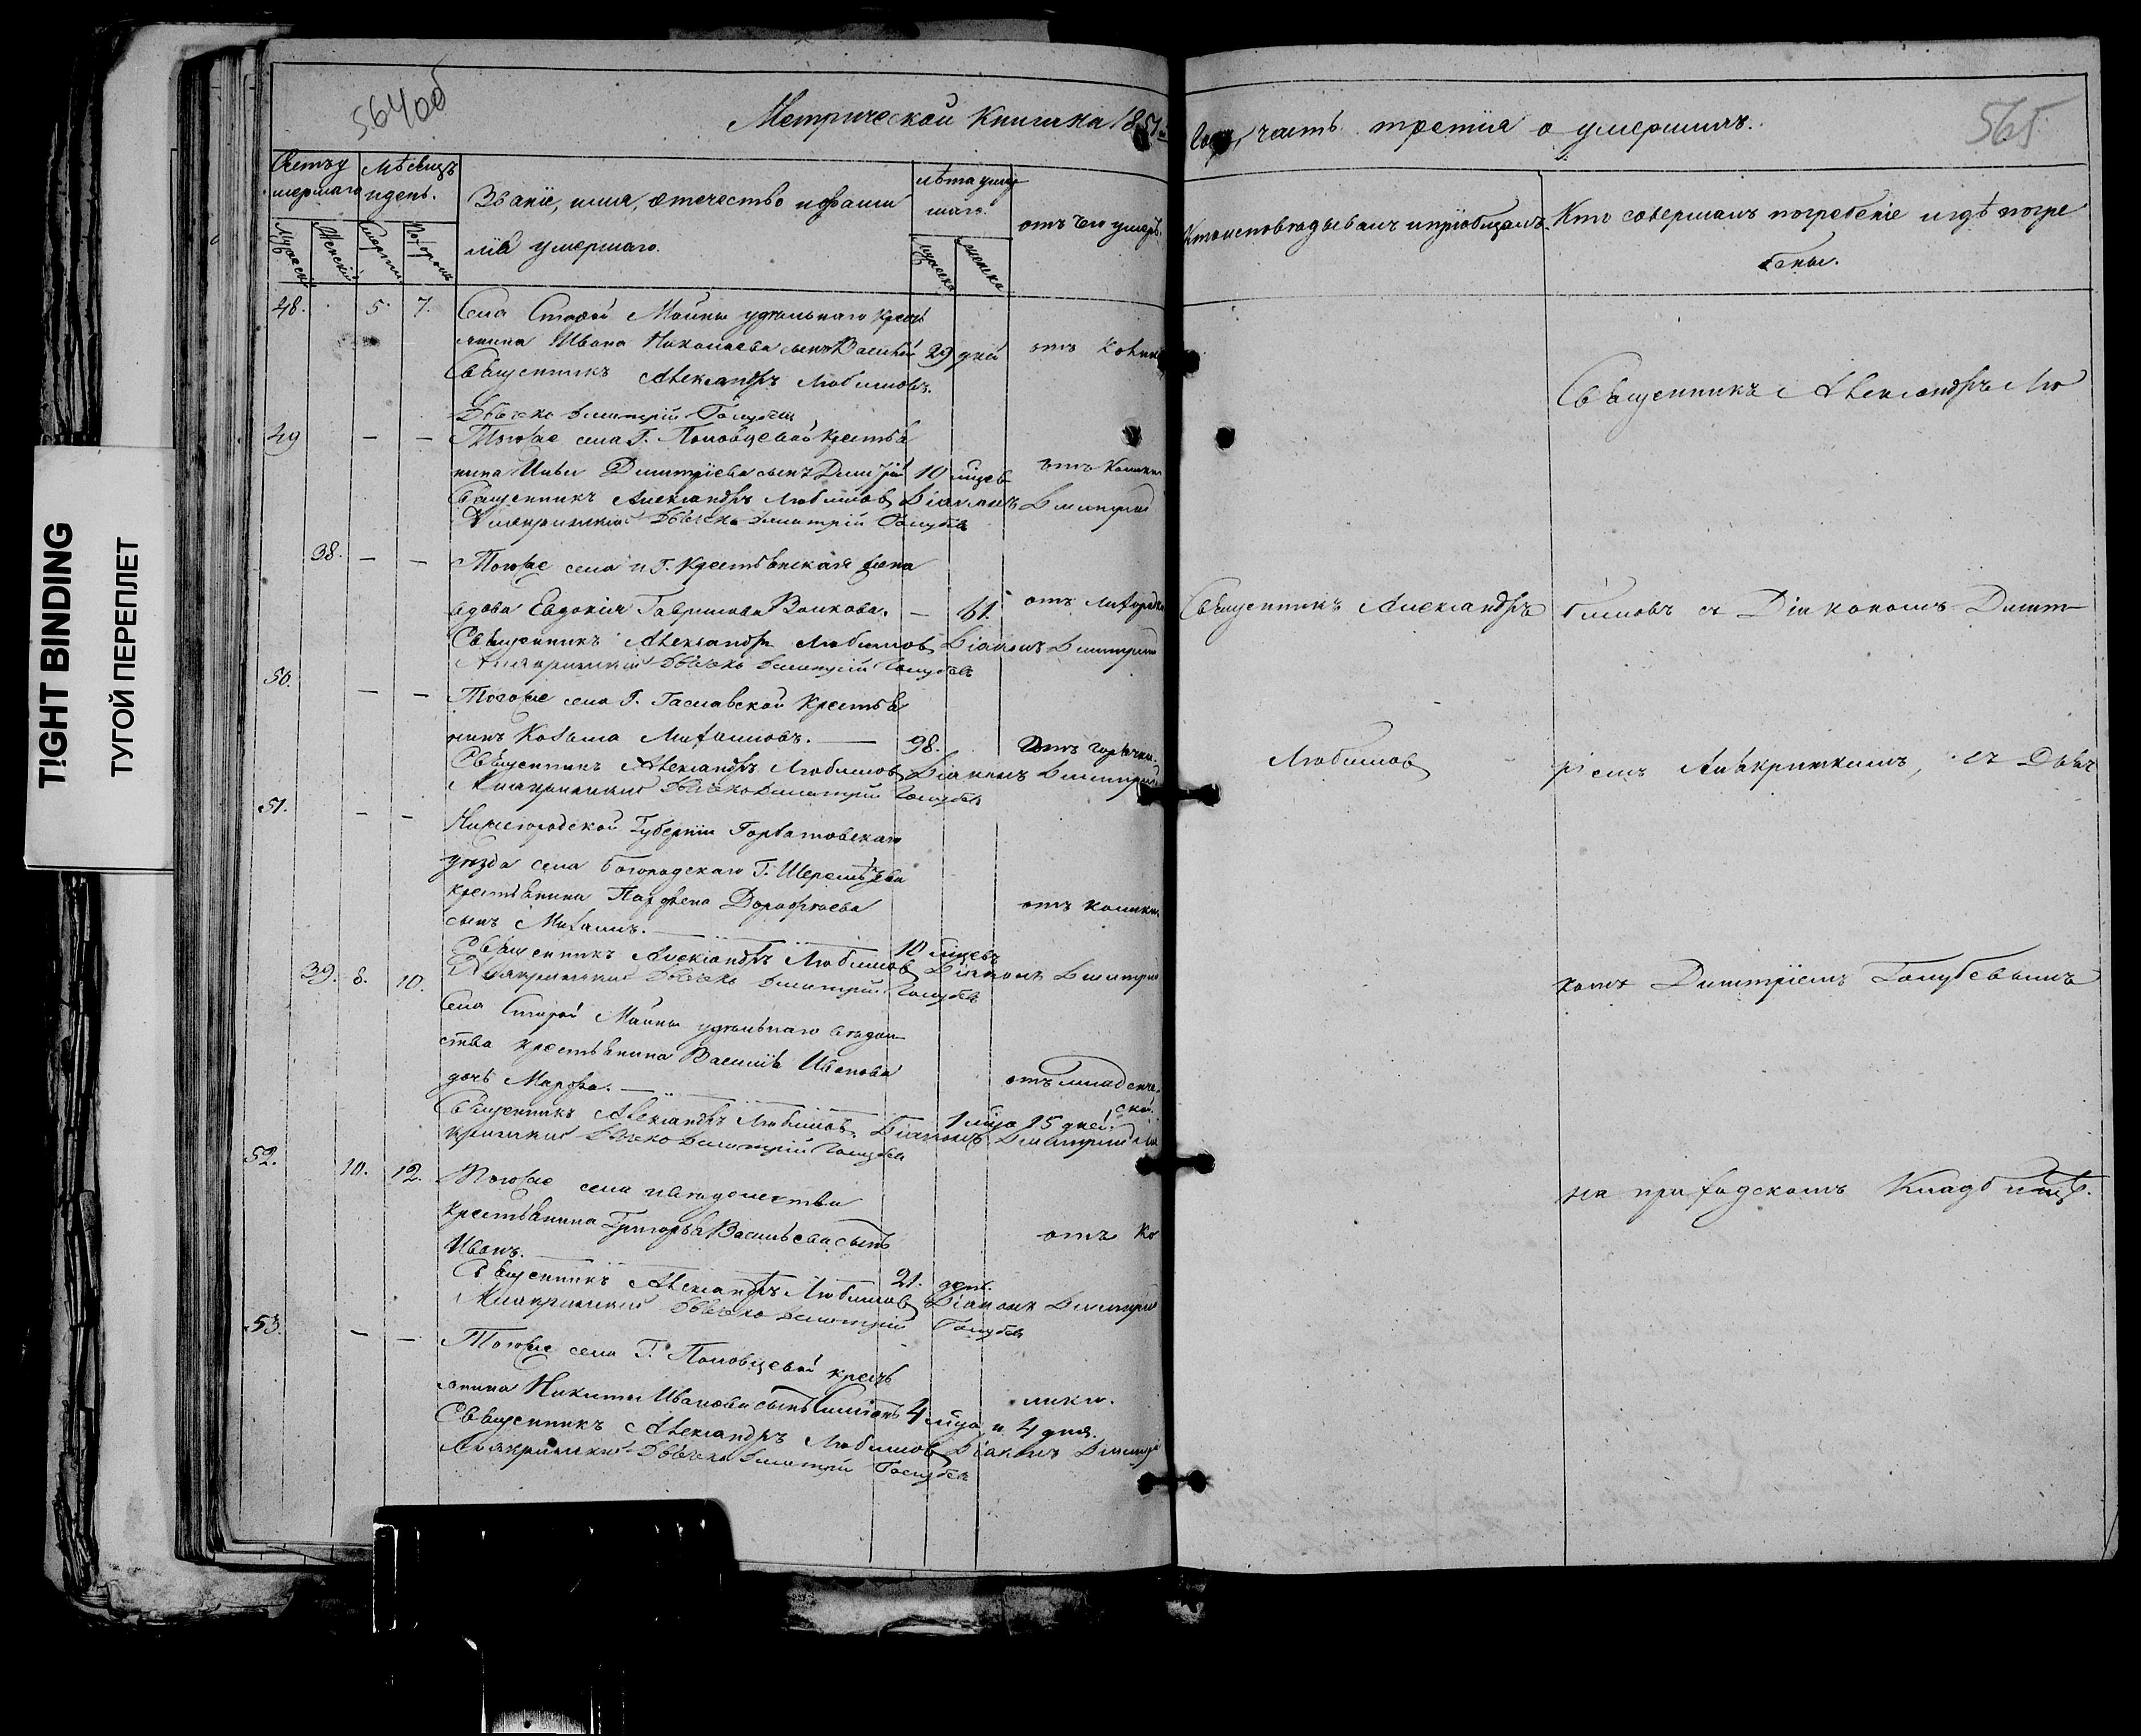 TIGHT BINDING
ТУГОЙ ПЕРЕПЛЕТ
564об
565
Метрической книги на 1851 года, часть третія о умершихъ.
Счетъ у
мершаго
Мѣсяцъ
и день.
Званіе, имя, отечество и фами
лія умершаго.
лѣта умер
шаго.
отъ чего умеръ.
Кто исповѣдывалъ и пріобщалъ.
Кто совершалъ погребеніе и гдѣ погре
бены.
Мужескій
Женскій
Смерти
Погреб
мужеска
женска
48. 5 7. Села Старой Майны удѣльнаго кресть
янина Ивана Николаева сынъ Василій 29 дней отъ
Священникъ Александръ Любимовъ.
Дьячекъ Димитрій Голубевъ
49 — — Тогоже села Г. Половцевой крестья
нина Ильи Димитріева сынъ 10 мцевъ отъ
Священникъ Александръ Любимовъ Діаконъ Димитрій
Дьячекъ Димитрій Голубевъ
38. — — Тогоже села и Г. Крестьянская жена
вдова Евдокія Гаврилова Волкова. — 61. отъ лихорадки
Священникъ Александръ Любимовъ Діаконъ Димитрій
Дьячекъ Димитрій Голубевъ
50. — — Тогоже села Г. крестья
нинъ Козьма Михайловъ. — 98. отъ горячки.
Священникъ Александръ Любимовъ Діаконъ Димитрій
Дьячекъ Димитрій Голубевъ
51. — — Нижегородской Губерніи Горбатовскаго
уѣзда села Богородскаго Г. Шереметева
крестьянина Парфена Дорофеева
сынъ Михаилъ. — 10 мцевъ отъ
Священникъ Александръ Любимовъ Діаконъ Димитрій
Дьячекъ Димитрій Голубевъ
39. 8. 10. Села Старой Майны удѣльнаго вѣдом
ства крестьянина Василія Иванова
дочь Марфа. — 1 мца 15 дней. отъ младенче
ской.
Священникъ Александръ Любимовъ. Діаконъ Димитрій
Дьячекъ Димитрій Голубевъ
52. 10. 12. Тогоже села и вѣдомства
крестьянина Григорья Васильева сынъ
Иванъ. — 21. день. отъ ко
Священникъ Александръ Любимовъ Діаконъ Димитрій
Дьячекъ Димитрій Голубевъ
53. — — Тогоже села Г. Половцевой кресть
янина Никиты Иванова сынъ 4 мца и 4 дня. лики.
Священникъ Александръ Любимовъ Діаконъ Димитрій
Дьячекъ Димитрій Голубевъ
Священникъ Александръ
Любимовъ
Священникъ Александръ Лю
бимовъ съ Діакономъ Димит
ріемъ съ Дьяч
комъ Димитріемъ Голубевымъ
на приходскомъ Кладбищѣ.